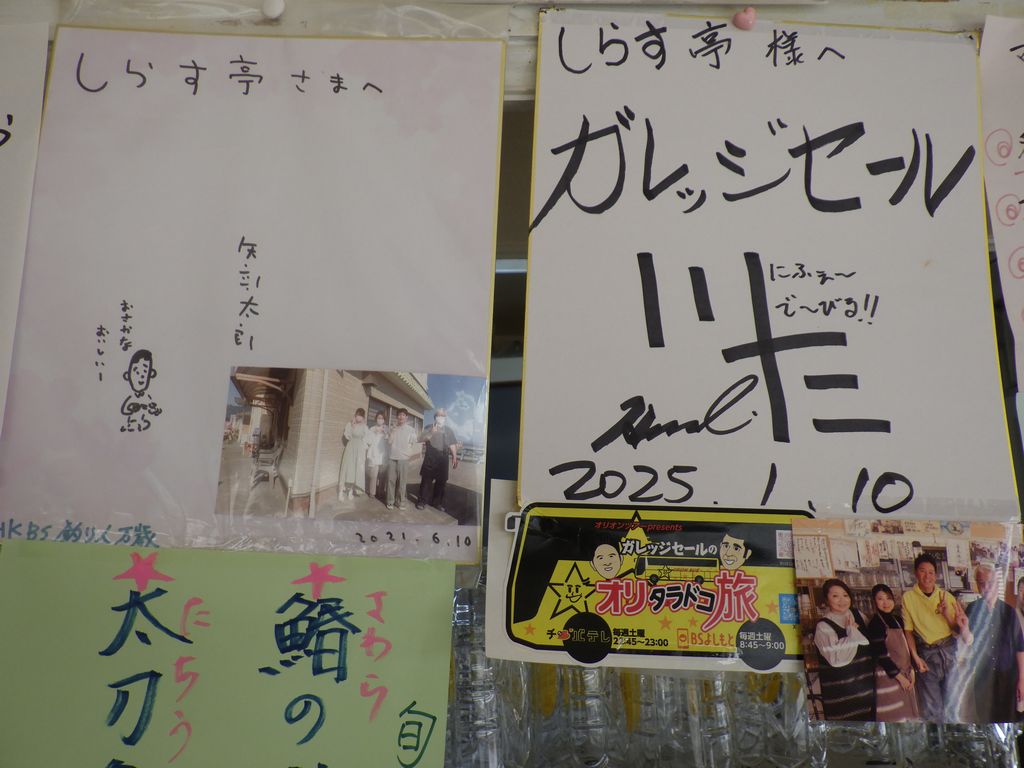 しらす亭さまへ
矢部太郎
おさかな
おいしいー
2021.6.10
釣り人万歳
しらす亭様へ
ガレッジセール
川三
にふぇ〜
で〜びる!!
2025.1.10
オリオンツアーpresents
ガレッジセールの
オリタラドコ旅
毎週土曜
BSよしもと
毎週土曜
8:45〜9:00
太刀
にちう
鰆の
さわら
旬